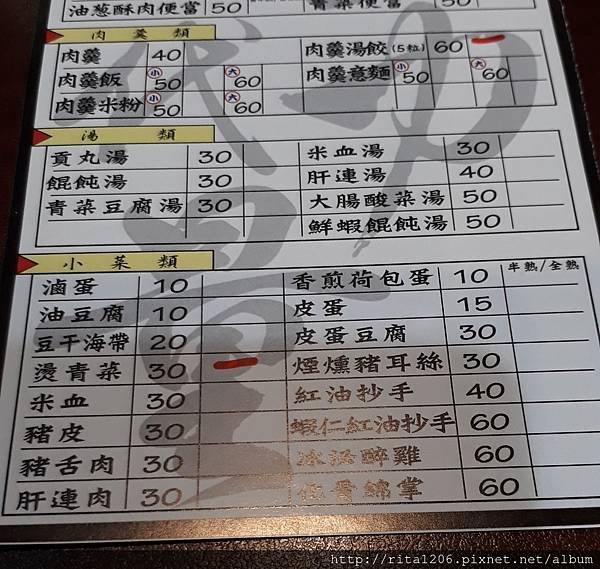 油蔥酥肉便當 50 青菜便當 50
肉羹類
肉羹 40 肉羹湯餃(5粒) 60
肉羹飯 小50 大60 肉羹意麵 小50 大60
肉羹米粉 小50 大60
湯類
貢丸湯 30 米血湯 30
餛飩湯 30 肝連湯 40
青菜豆腐湯 30 大腸酸菜湯 50
鮮蝦餛飩湯 50
小菜類
滷蛋 10 香煎荷包蛋 10 半熟/全熟
油豆腐 10 皮蛋 15
豆干海帶 20 皮蛋豆腐 30
燙青菜 30 煙燻豬耳絲 30
米血 30 紅油抄手 40
豬皮 30 蝦仁紅油抄手 60
豬舌肉 30 醉雞 60
肝連肉 30 60
http://rita1206.pixnet.net/album